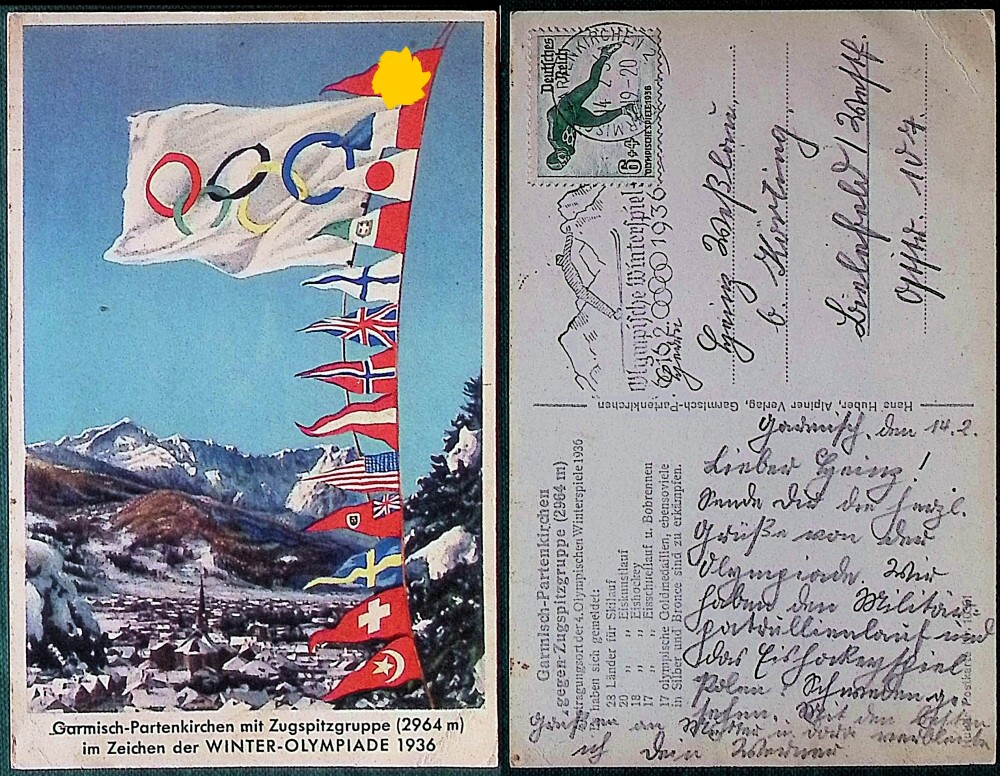 Garmisch-Partenkirchen mit Zugspitzgruppe (2964 m)
im Zeichen der WINTER-OLYMPIADE 1936
Deutsches
Reich
6+4
OLYMPISCHE SPIELE 1936
14.2.36 19-20
Olympische Winterspiele
6.-16.2. 1936
Herrn
Heinz Weßlau
b. Körting
Bielefeld / Westf.
Hans Huber, Alpiner Verlag, Garmisch-Partenkirchen
Garmisch-Partenkirchen
gegen Zugspitzgruppe (2964 m)
Austragungsort der 4. Olympischen Winterspiele 1936
Es haben sich gemeldet:
23 Länder für Skilauf
20 „ „ Eiskunstlauf
18 „ „ Eishockey
17 „ „ Eisschnellauf u. Bobrennen
17 olympische Goldmedaillen, ebensoviele
in Silber und Bronce sind zu erkämpfen.
Postkarte
Garmisch, den 14.2.
Lieber Heinz!
Sende dir die herzl.
Grüße von der
Olympiade. Wir
haben den Militär
patrullienlauf und
das Eishockeyspiel
Polen : Schweden ge-
sehen. Mit den besten
Grüßen an Mutter u. verbleibe
ich Dein Werner.